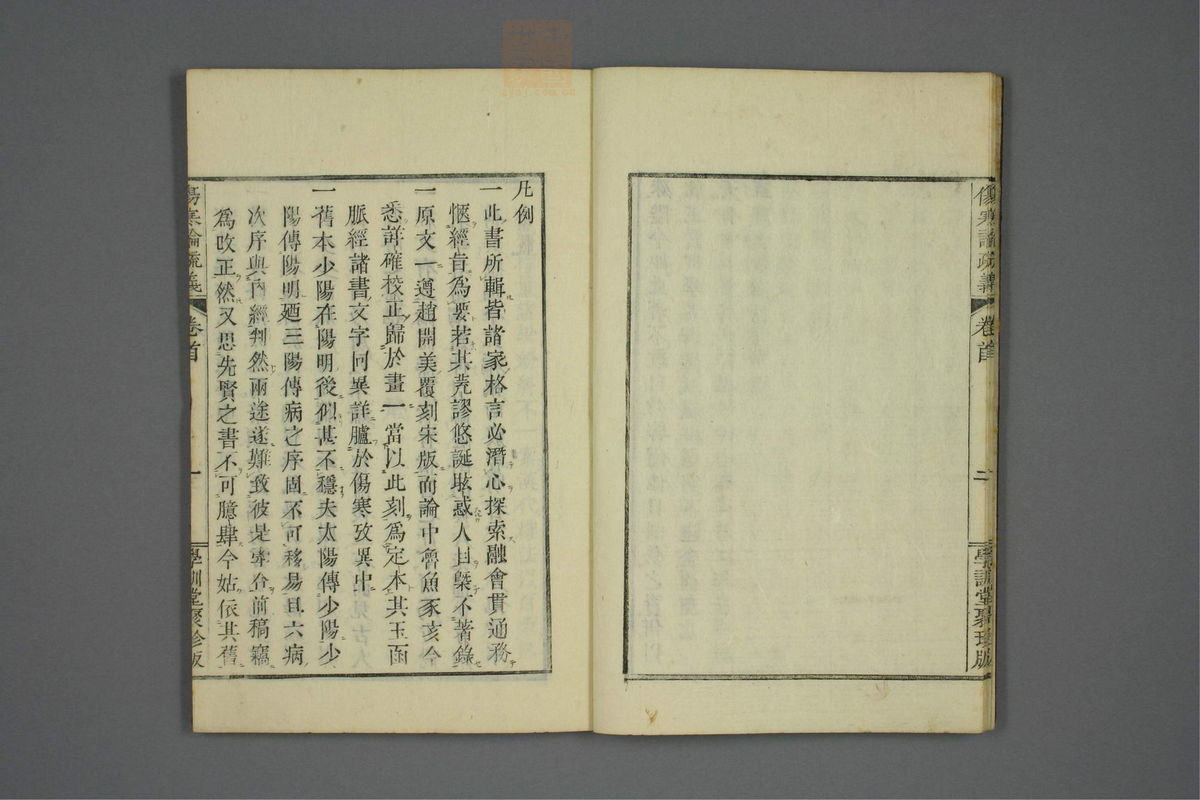 傷寒論疏義
卷首
二
學訓堂聚珍版
凡例
一此書所輯皆諸家格言必潛心探索融會貫通務
愜經旨爲要若其荒謬悠誕眩惑人目槩不著錄
一原文一遵趙開美覆刻宋版而論中魯魚豕亥今
悉詳確校正歸於畫一當以此刻爲定本其玉函
脈經諸書文字同異詳臚於傷寒攷異中
一舊本少陽在陽明後似甚不穩夫太陽傳少陽少
陽傳陽明廼三陽傳病之序固不可移易且六病
次序與內經判然兩途遂難致彼是牽合前稿竊
爲改正然又思先賢之書不可臆肆今姑依其舊
傷寒論疏義
卷首
一
學訓堂聚珍版